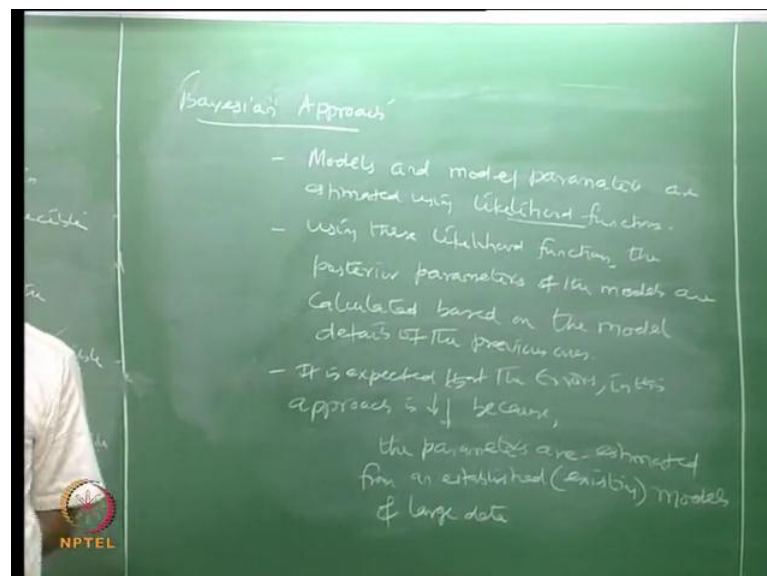 Bayesian Approach
- Models and model parameters are
estimated using likelihood functions.
- using these likelihood function, the
posterior parameters of the models are
calculated based on the model
details of the previous ones.
- It is expected that the Errors, in this
approach is ↓↓ because,
the parameters are estimated
from an established (existing) models
of large data
NPTEL